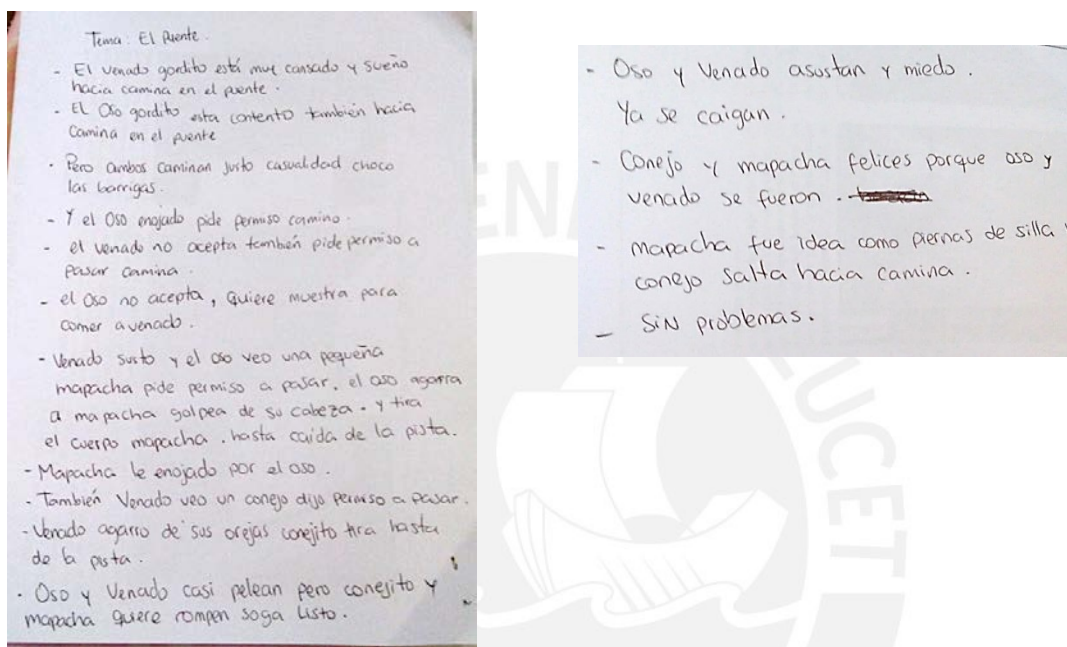 Tema: El Puente.
- El venado gordito está muy cansado y sueño
hacia camina en el puente.
- EL Oso gordito esta contento también hacia
Camina en el puente
- Pero ambos caminan justo casualidad choco
las barrigas.
- Y el Oso enojado pide permiso camino.
- el venado no acepta también pide permiso a
pasar camina.
- el oso no acepta, quiere muestra para
comer a venado.
- Venado susto y el oso veo una pequeña
mapacha pide permiso a pasar. el oso agarra
a mapacha golpea de su cabeza. y tira
el cuerpo mapacha. hasta caida de la pista.
- Mapacha le enojado por el oso.
- También Venado veo un conejo dijo permiso a pasar.
- Venado agarro de sus orejas conejito tira hasta
de la pista.
- Oso y Venado casi pelean pero conejito y
mapacha quiere rompen soga Listo.
- Oso y Venado asustan y miedo.
Ya se caigan.
- Conejo y mapacha felices porque oso y
venado se fueron.
- mapacha fue idea como piernas de silla
conejo salta hacia camina.
- SiN problemas.